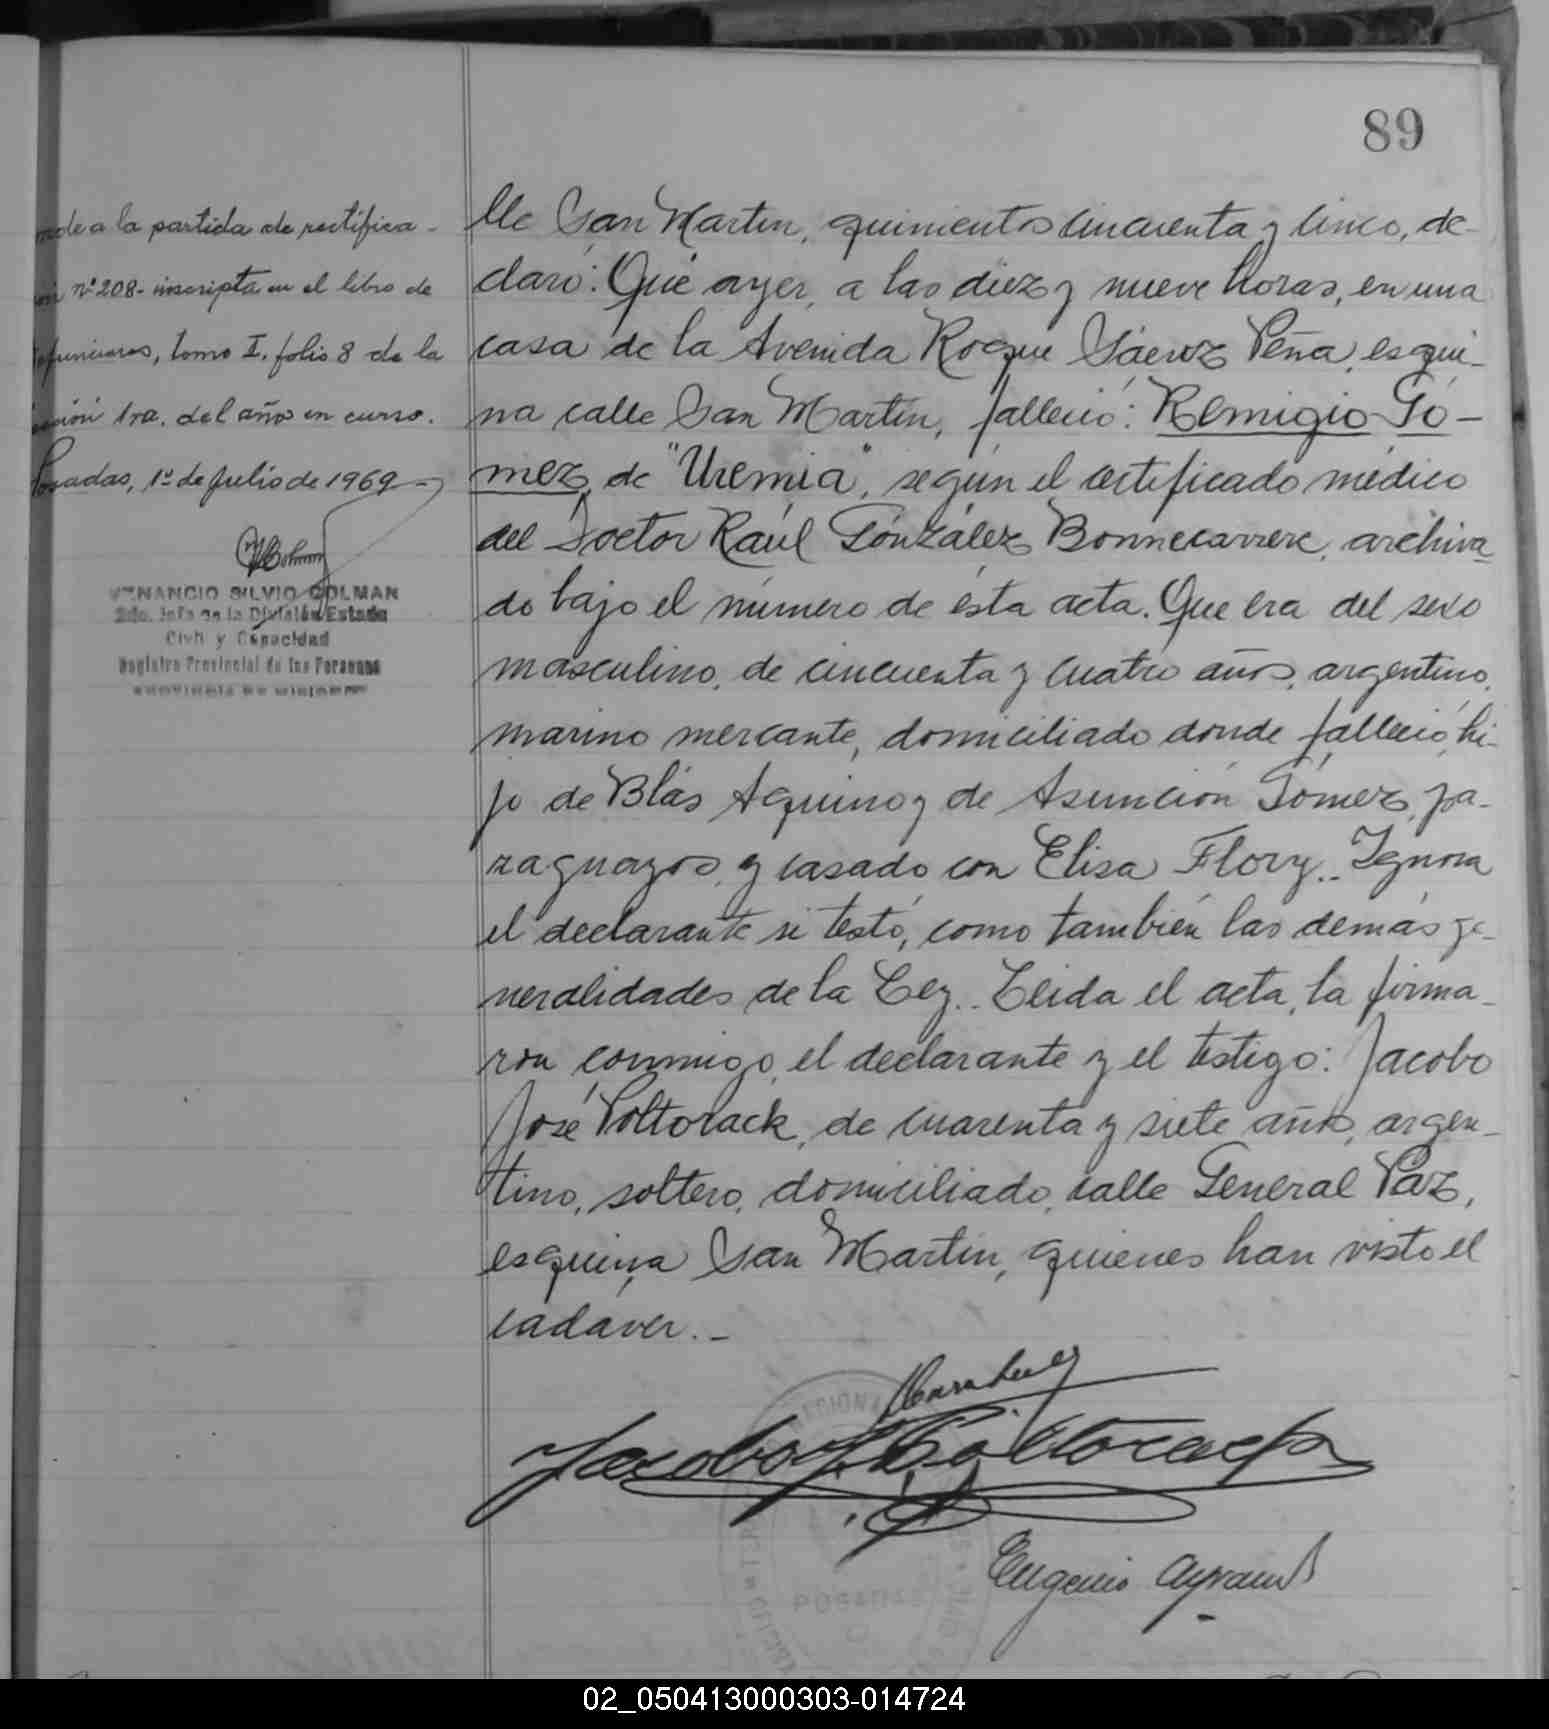 89
lle San Martin, quinientos cincuenta y cinco, de-
claró: Que ayer, a las diez y nueve horas, en una
casa de la Avenida Roque Sáenz Peña, esqui-
na calle San Martin, falleció: Remigio Gó-
mez, de "Uremia", según el certificado médico
del Doctor Raúl Gónzález Bonnecarrere, archiva-
do bajo el número de ésta acta. Que era del sexo
masculino, de cincuenta y cuatro años, argentino,
marino mercante, domiciliado donde falleció, hi-
jo de Blás Aquino y de Asunción Gómez, pa-
raguayos, y casado con Elisa Flory.. Ignora
el declarante si testó, como también las demás ge-
neralidades de la Ley.. Leida el acta, la firma-
ron conmigo, el declarante y el testigo: Jacobo
José Poltorack, de cuarenta y siete años, argen-
tino, soltero, domiciliado, calle General Paz,
esquina San Martin, quienes han visto el
cadáver.-
Jacobo J. Poltorack
Eugenio
a la partida de rectifica-
nº 208- inscripta en el libro de
tomo I, folio 8 de la
1ra. del año en curso.
Posadas, 1º de julio de 1969
VENANCIO SILVIO COLMAN
2do. Jefe de la División Estado
Civil y Capacidad
Registro Provincial de las Personas
PROVINCIA DE MISIONES
POSADAS
02_050413000303-014724